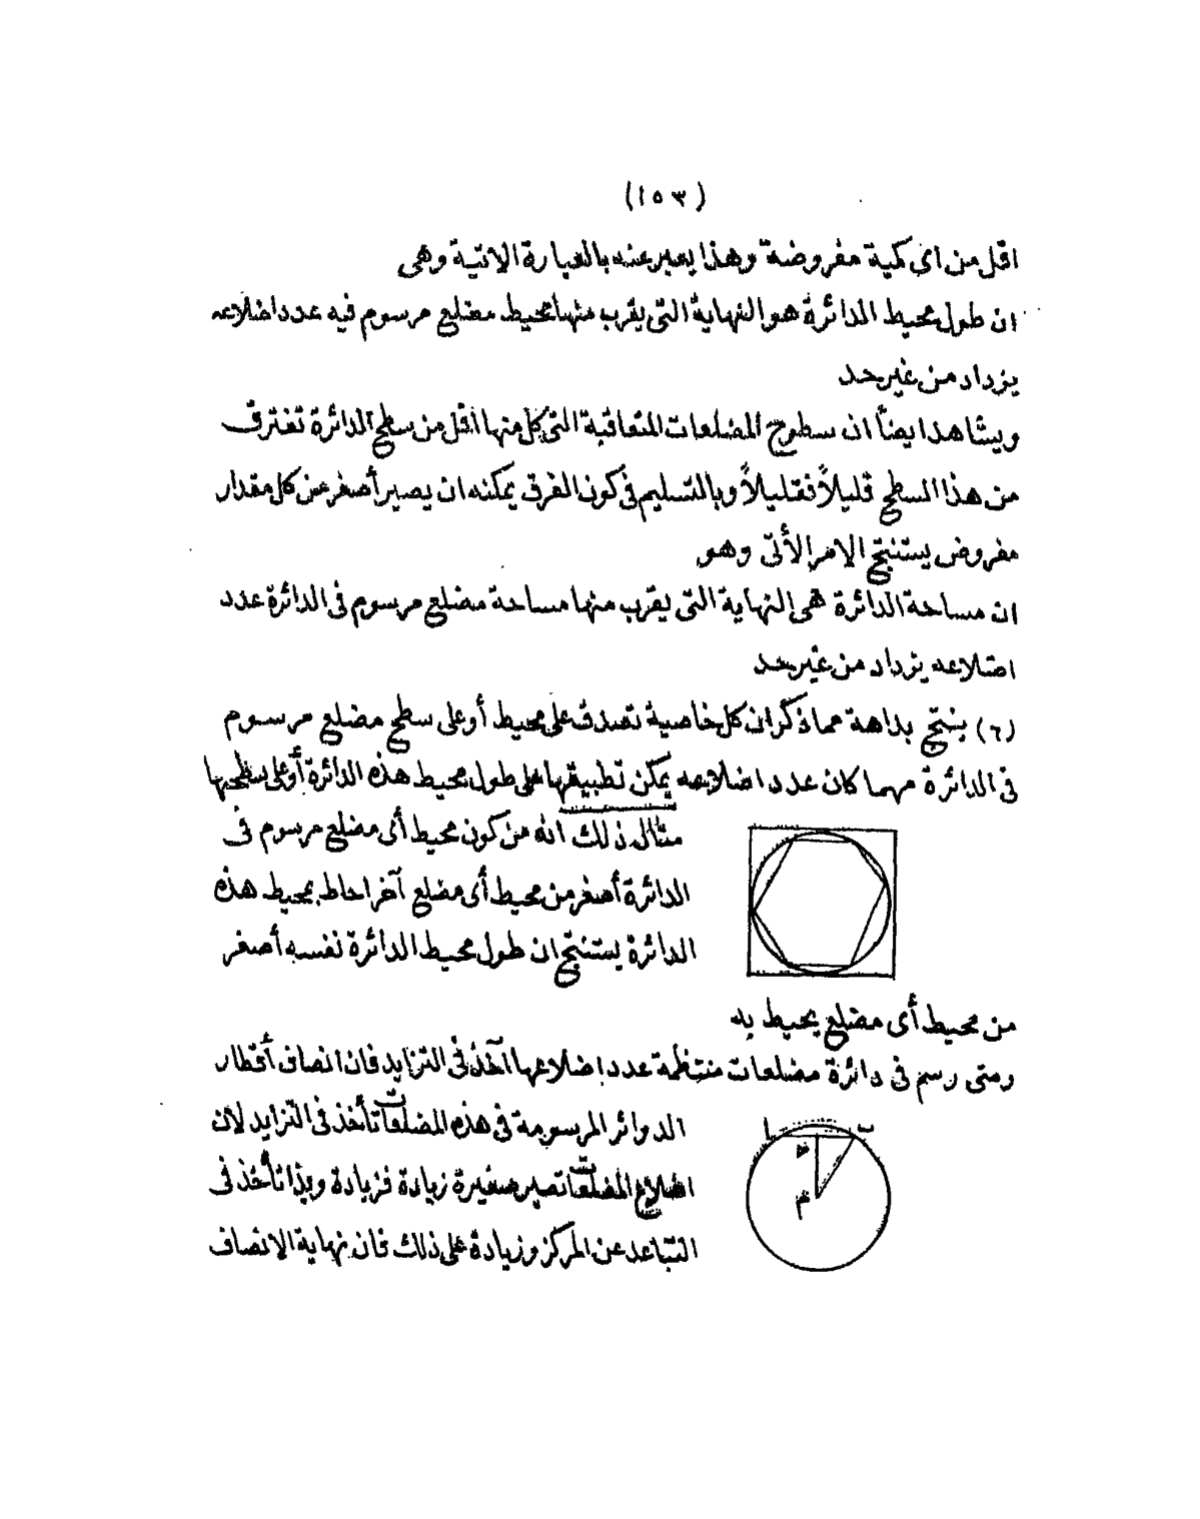 (١٥٣)
اقل من اى كمية مفروضة وهذا يعبر عنه بالعبارة الاتية وهى
ان طول محيط الدائرة هو النهاية التى يقرب منها محيط مضلع مرسوم فيه عدد اضلاعه
يزداد من غير حد
ويشاهد ايضاً ان سطوح المضلعات المتعاقبة التى كل منها اقل من سطح الدائرة تفترق
من هذا السطح قليلاً فقليلاً وبالتسليم فى كون الفرق يمكنه ان يصير أصغر من كل مقدار
مفروض يستنتج الامر الأتى وهو
ان مساحة الدائرة هى النهاية التى يقرب منها مساحة مضلع مرسوم فى الدائرة عدد
اضلاعه يزداد من غير حد
(٦) ينتج بداهة مما ذكر ان كل خاصية تصدق على محيط أو على سطح مضلع مرسوم
فى الدائرة مهما كان عدد اضلاعه يمكن تطبيقها على طول محيط هذه الدائرة أو على سطحها
مثال ذلك انه من كون محيط أى مضلع مرسوم فى
الدائرة أصغر من محيط أى مضلع آخر احاط بمحيط هذه
الدائرة يستنتج ان طول محيط الدائرة نفسه أصغر
من محيط أى مضلع يحيط به
ومتى رسم فى دائرة مضلعات منتظمة عدد اضلاعها آخذ فى التزايد فان انصاف أقطار
الدوائر المرسومة فى هذه المضلعات تأخذ فى التزايد لان
اضلاع المضلعات تصير صغيرة زيادة فزيادة وبذا تأخذ فى
التباعد عن المركز وزيادة على ذلك فان نهاية الانصاف
ا
ب
م